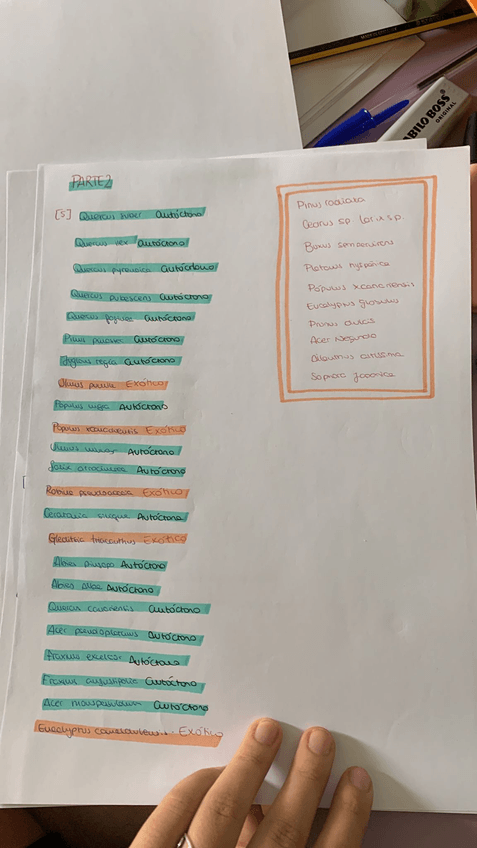 PARTE 2
[5] Quercus suber Autóctono
Quercus ilex Autóctono
Quercus pyrenaica Autóctono
Quercus pubescens Autóctono
Quercus Autóctono
Pinus Autóctono
Juglans regia Autóctono
Ulmus pumila Exótico
Populus nigra Autóctono
Populus Exótico
Ulmus Autóctono
Salix atrocinerea Autóctono
Robinia pseudoacacia Exótico
Ceratonia siliqua Autóctono
Gleditsia triacanthos Exótico
Abies pinsapo Autóctono
Abies alba Autóctono
Quercus canariensis Autóctono
Acer pseudoplatanus Autóctono
Fraxinus excelsior Autóctono
Fraxinus angustifolia Autóctono
Acer monspessulanum Autóctono
Eucalyptus camaldulensis Exótico
Pinus radiata
Cedrus sp. Larix sp.
Buxus sempervirens
Platanus hispanica
Populus x canadensis
Eucalyptus globulus
Prunus dulcis
Acer Negundo
Ailanthus altissima
Sophora japonica
STABILO BOSS
ORIGINAL